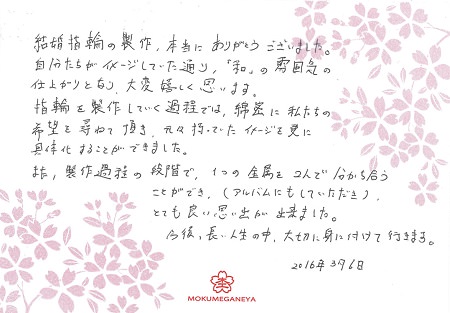 結婚指輪の製作、本当にありがとうございました。
自分たちがイメージしていた通り、「和」の雰囲気の
仕上がりとなり、大変嬉しく思います。
指輪を製作していく過程では、綿密に私たちの
希望を尋ねて頂き、元々持っていたイメージを更に
具体化することができました。
また、製作過程の段階で、1つの金属を2人で分かち合う
ことができ、(アルバムにもしていただき)、
とても良い思い出が出来ました。
今後、長い人生の中、大切に身に付けて行きます。
2016年3月6日
MOKUMEGANEYA